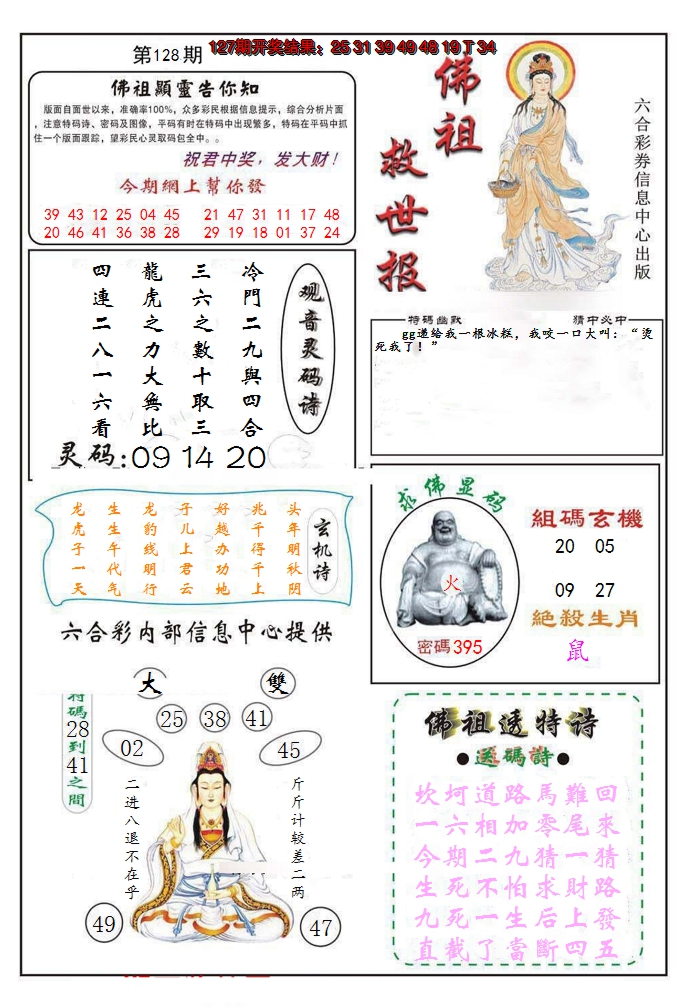 第128期
127期开奖结果：25 31 39 49 48 19 T 34
佛祖顯靈告你知
版面自面世以来，准确率100%，众多彩民根据信息提示，综合分析片面
，注意特码诗、密码及图像，平码有时在特码中出现繁多，特码在平码中抓
住一个版面跟踪，望彩民心灵取码包全中。。
祝君中奖，发大财！
今期網上幫你發
39 43 12 25 04 45 21 47 31 11 17 48
20 46 41 36 38 28 29 19 18 01 37 24
佛祖
救世报
六合彩券信息中心出版
观音灵码诗
冷門二九與四合
三六之數十取三
龍虎之力大無比
四連二八一六看
灵码:09 14 20
特碼幽默
猜中必中
gg递给我一根冰糕，我咬一口大叫：“烫
死我了！”
玄机诗
头年明秋阴
兆千得千上
好越办功地
子儿上君云
龙豹线明行
生生午代气
龙虎子一天
六合彩内部信息中心提供
求佛显码
火
密碼395
組碼玄機
20 05
09 27
絕殺生肖
鼠
大
雙
特碼28到41之間
25
38
41
02
45
二进八退不在乎
斤斤计较差二两
49
47
佛祖透特诗
●送碼詩●
坎坷道路馬難回
一六相加零尾來
今期二九猜一猜
生死不怕求財路
九死一生后上發
直截了當斷四五